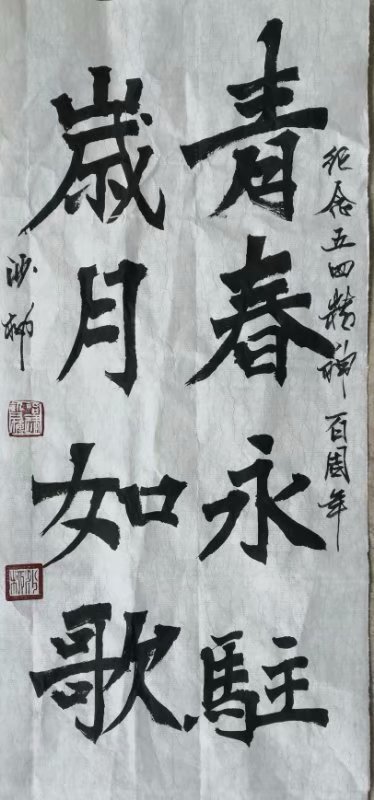 纪念五四精神百周年
青春永駐
歲月如歌
沙柳